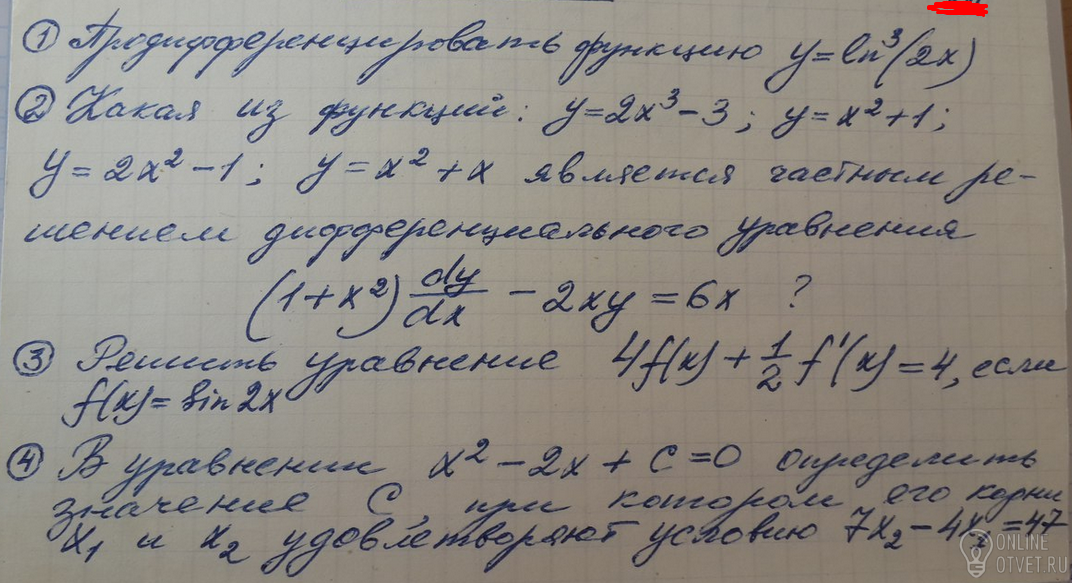 ① Продифференцировать функцию y=ln³(2x)
② Какая из функций: y=2x³-3; y=x²+1;
y=2x²-1; y=x²+x является частным ре-
шением дифференциального уравнения
(1+x²) dy/dx - 2xy = 6x ?
③ Решить уравнение 4f(x)+1/2 f'(x)=4, если
f(x)=sin2x
④ В уравнении x²-2x+C=0 определить
значение C, при котором его корни
x₁ и x₂ удовлетворяют условию 7x₂-4x₁=47
ONLINE
OTVET.RU